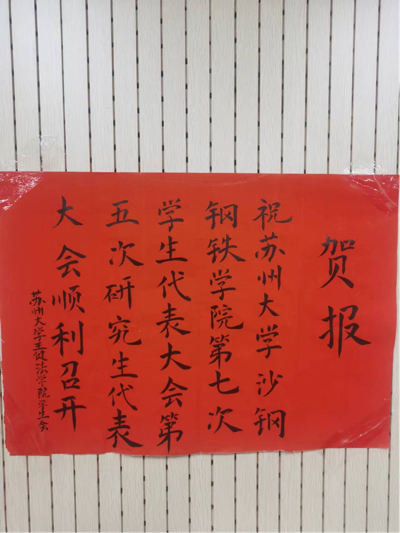 贺报
祝苏州大学沙钢
钢铁学院第七次
学生代表大会第
五次研究生代表
大会顺利召开
苏州大学王健法学院学生会